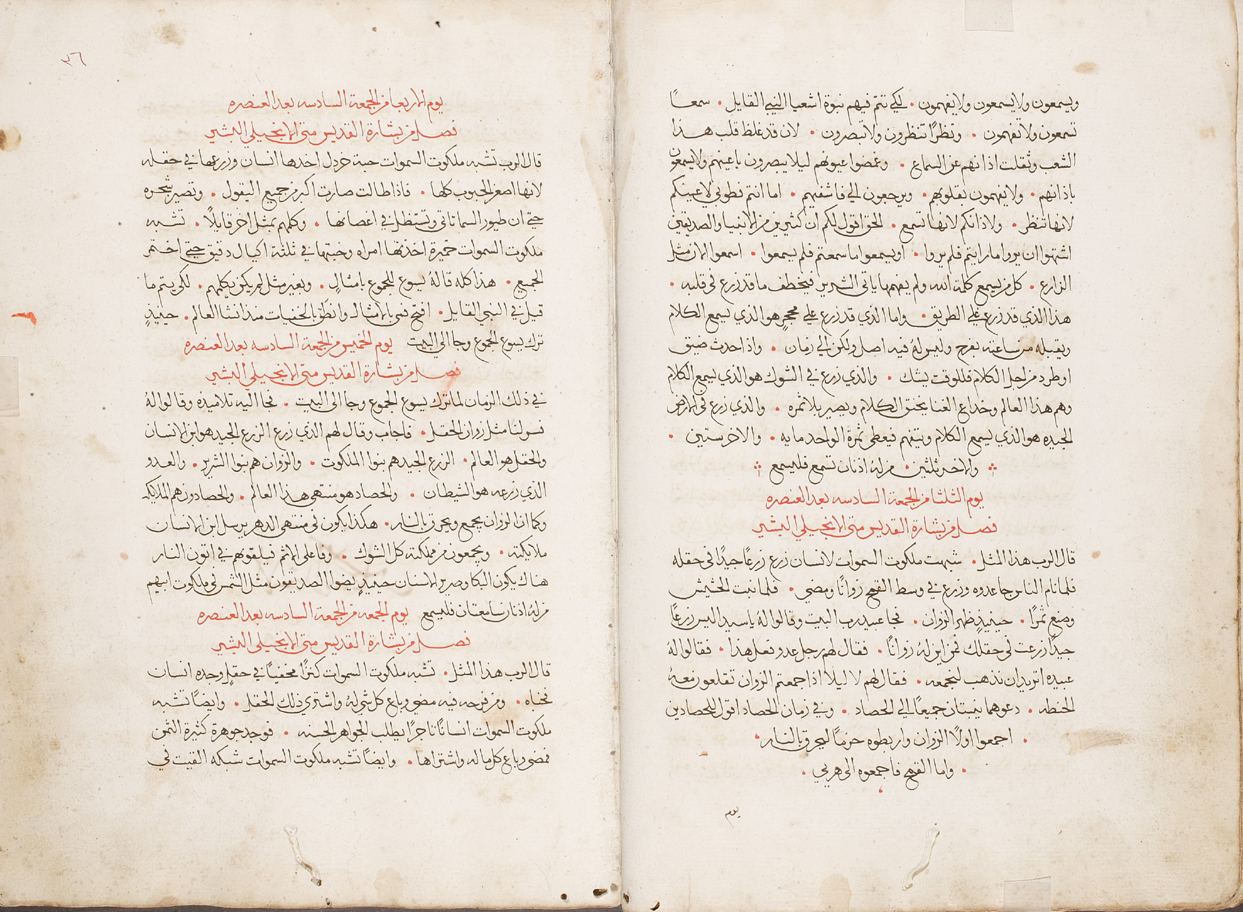 ويسمعون ولا يسمعون ولا يفهمون • لكي تتم فيهم نبوة اشعيا النبي القايل • سمعاً
تسمعون ولا تفهمون • ونظراً تنظرون ولا تبصرون • لان قد غلظ قلب هذا
الشعب وثقلت اذانهم عن السماع • وغمضوا عيونهم ليلا يبصرون باعينهم ولا يسمعون
باذانهم • ولا يفهمون بقلوبهم • ويرجعون الي فاشفيهم • اما انتم فطوبى لاعينكم
لانها تنظر • ولاذانكم لانها تسمع • الحق اقول لكم ان كثيرين من الانبيا والصديقين
اشتهوا ان يروا ما رايتم فلم يروا • او يسمعوا ما سمعتم فلم يسمعوا • اسمعوا الان مثل
الزارع • كل من يسمع كلمة الله ولم يفهمها ياتي الشرير فيخطف ما قد زرع في قلبه •
هذا الذي قد زرع على الطريق • واما الذي قد زرع على محجر هو الذي يسمع الكلام
ويقبله من ساعته بفرح وليس له فيه اصل ولكن الى زمان • واذا حدث ضيق
او طرد من اجل الكلام فللوقت يشك • والذي زرع في الشوك هو الذي يسمع الكلام
وهم هذا العالم وخداع الغنا يخنق الكلام ويصير بلا ثمره • والذي زرع في الارض
الجيده هو الذي يسمع الكلام ويتفهم فيعطى ثمرة الواحد مايه • والاخر ستين •
والاخر ثلثين • من له اذنان تسمع فليسمع
يوم الثلثا من الجمعة السادسه بعد العنصره
فصل من بشارة القديس متى الانجيلي البشير
قال الرب هذا المثل • شبهت ملكوت السموات لانسان زرع زرعاً جيداً في حقله
فلما نام الناس جا عدوه وزرع في وسط القمح زواناً ومضى • فلما نبت الحشيش
وصنع ثمراً • حينيذٍ ظهر الزوان • فجا عبيد رب البيت وقالوا له يا سيد اليس زرعاً
جيداً زرعت في حقلك فمن اين له زواناً • فقال لهم رجل عدو فعل هذا • فقالوا له
عبيده اتريد ان نذهب لنجمعه • فقال لهم لا ليلا اذا جمعتم الزوان تقلعون معه
الحنطه • دعوهما ينبتان جميعاً الى الحصاد • وفي زمان الحصاد اقول للحصادين
• اجمعوا اولاً الزوان واربطوه حزماً ليحرق بالنار •
• واما القمح فاجمعوه الى هريي •
يوم
٣٦
يوم الاربعا من الجمعة السادسه بعد العنصره
فصل من بشارة القديس متى الانجيلي البشير
قال الرب تشبه ملكوت السموات حبة خردل اخذها انسان وزرعها في حقله
لانها اصغر الحبوب كلها • فاذا طالت صارت اكبر من جميع البقول • وتصير شجره
حتى ان طيور السما تاتي وتستظل في اغصانها • وكلمهم بمثل اخر قايلاً • تشبه
ملكوت السموات خميرة اخذتها امراه وخبتها في ثلثة اكيال دقيق حتى اختمر
الجميع • هذا كله قاله يسوع للجموع بامثال • وبغير مثل لم يكن يكلمهم • لكي يتم ما
قيل في النبي القايل • افتح فمي بالامثال وانطق بالخفيات منذ انشا العالم • حينيذٍ
ترك يسوع الجموع وجا الى البيت يوم الخميس من الجمعة السادسه بعد العنصره
فصل من بشارة القديس متى الانجيلي البشير
في ذلك الزمان لما ترك يسوع الجموع وجا الى البيت • فجا اليه تلاميذه وقالوا له
فسر لنا مثل زوان الحقل • فاجاب وقال لهم الذي زرع الزرع الجيد هو ابن الانسان
والحقل هو العالم • الزرع الجيد هم بنوا الملكوت • والزوان هم بنوا الشرير • والعدو
الذي زرعه هو الشيطان • والحصاد هو منتهى هذا العالم • والحصادون هم الملايكه
وكما ان الزوان يجمع ويحرق بالنار • هكذا يكون في منتهى الدهر يرسل ابن الانسان
ملايكته • ويجمعون من مملكته كل الشوك • وفاعلي الاثم فيلقوهم في اتون النار
هناك يكون البكا وصرير الاسنان حينيذٍ يضوا الصديقون مثل الشمس في ملكوت ابيهم
من له اذنان سامعتان فليسمع يوم الجمعه من الجمعة السادسه بعد العنصره
فصل من بشارة القديس متى الانجيلي البشير
قال الرب هذا المثل • تشبه ملكوت السموات كنزاً مخفياً في حقل وجده انسان
فخباه • ومن فرحه فيه مضى وباع كل شي له واشترى ذلك الحقل • وايضاً تشبه
ملكوت السموات انساناً تاجراً يطلب الجواهر الحسنه • فوجد جوهرة كثيرة الثمن
فمضى وباع كل ما له واشتراها • وايضاً تشبه ملكوت السموات شبكه القيت في